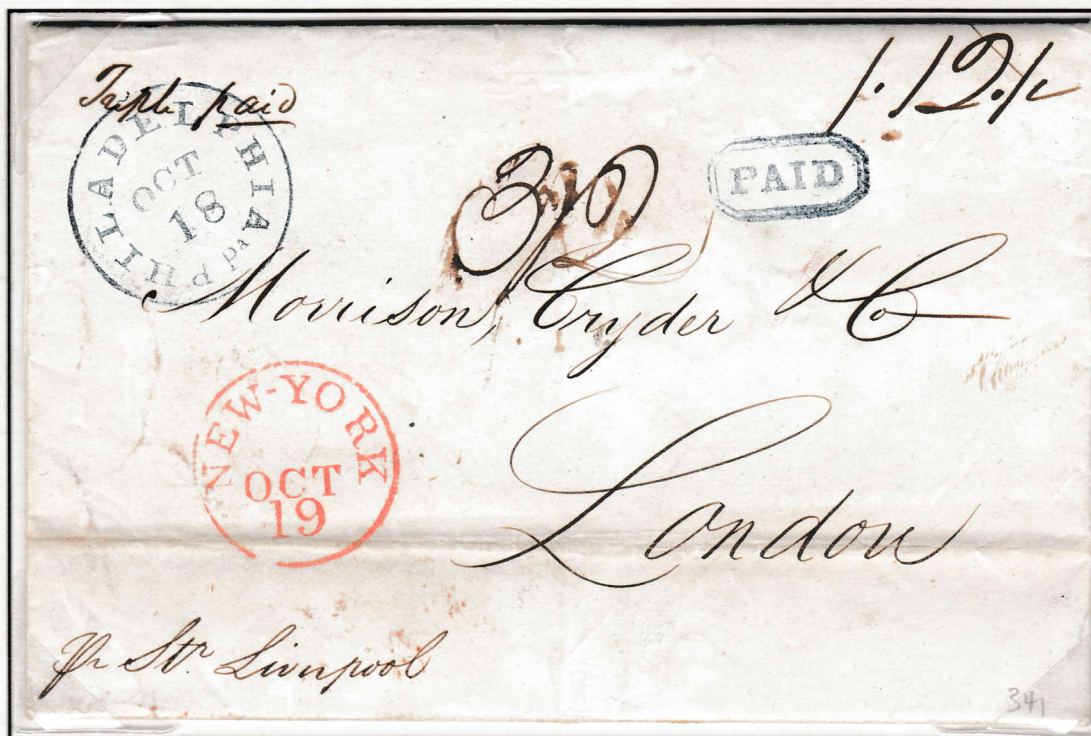 Triple paid
1.12½
PHILADELPHIA Pa
OCT
18
PAID
3/6
Morrison, Cryder & Co
London
NEW-YORK
OCT
19
pr Str Liverpool
341